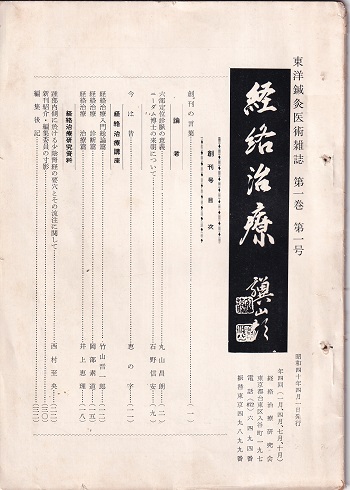 東洋鍼灸医術雑誌 第一巻 第一号
経絡治療
昭和四十年四月一日発行
年四回(一月、四月、七月、十月)
経絡治療研究会
東京都台東区入谷町一九七
振替東京四九八九番
創刊号目次
創刊の言葉……(一)
論著
六部定位診脈の意義……丸山昌朗(二)
ニーダム博士の来朝について……石野信安(九)
今は昔……恵の字(一一)
経絡治療講座
経絡治療入門総論篇……竹山晋一郎(一二)
経絡治療 診断篇……岡部素道(一五)
経絡治療 治療篇……井上恵理(一八)
経絡治療研究資料
新刊紹介・編集委員の寸影
編集後記